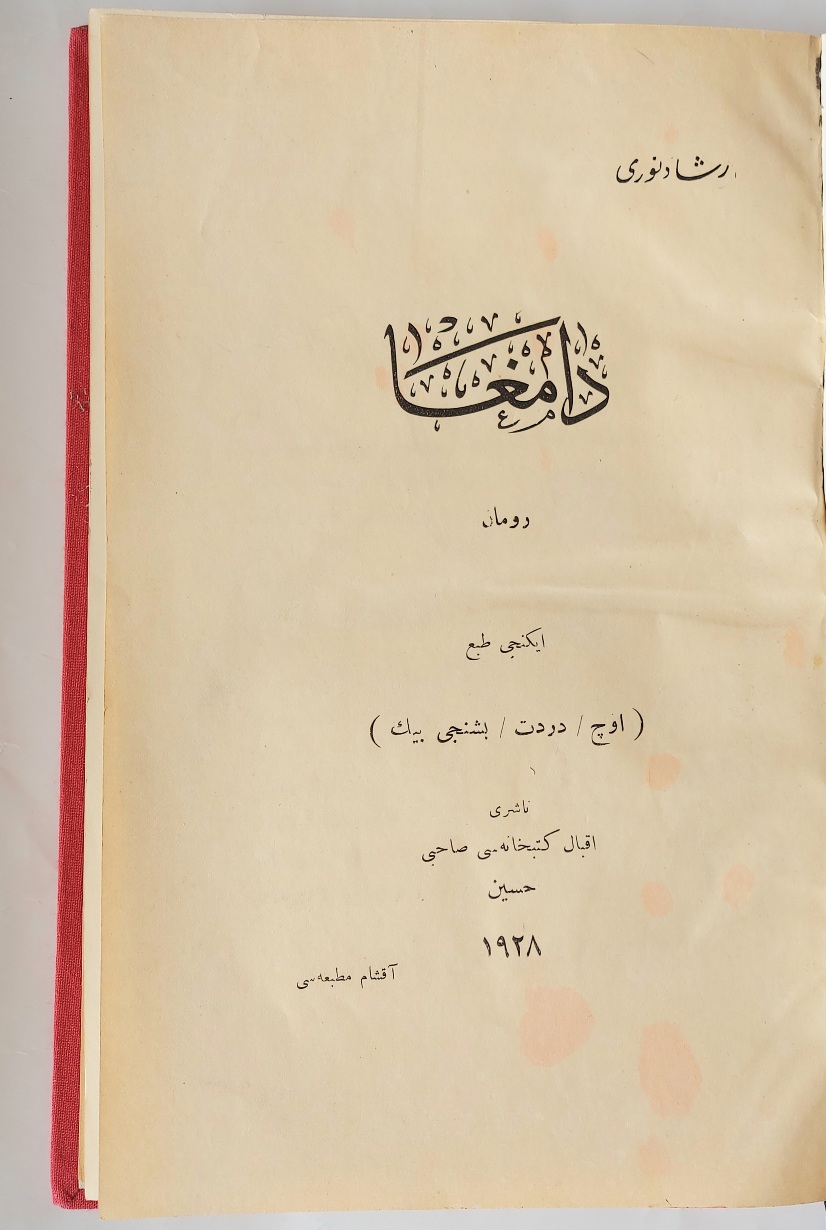 رشاد نوری
دامغا
رومان
ایکنجی طبع
( اوچ / دردت / بشنجی بیك )
ناشری
اقبال کتبخانه‌سی صاحبی
حسین
۱۹۲۸
آقشام مطبعه‌سی